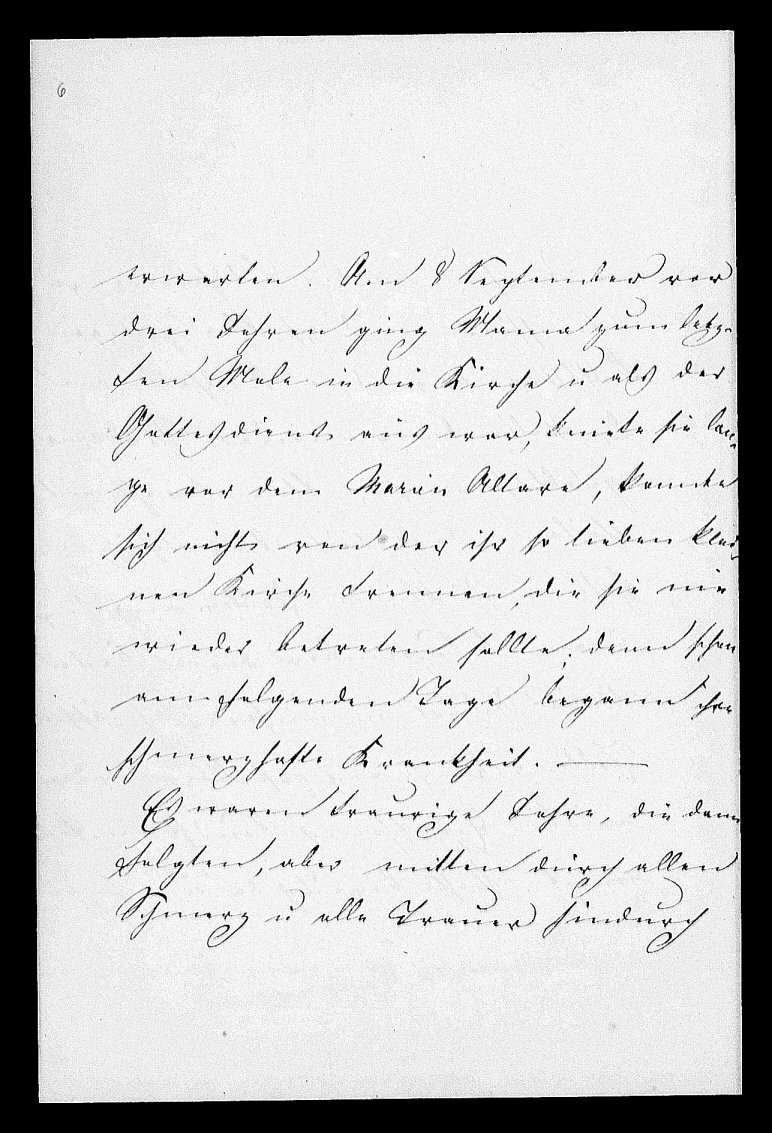 6
erwarten. Am 8 September vor
drei Jahren ging Mama zum letz-
ten Male in die Kirche u als der
Gottesdienst aus war, kniete sie lan-
ge vor dem Marien Altare, konnte
sich nicht von der ihr so lieben klei-
nen Kirche trennen, die sie nie
wieder betreten sollte; denn schon
am folgenden Tage begann ihre
schmerzhafte Krankheit. —
Es waren traurige Jahre, die dann
folgten, aber mitten durch allen
Schmerz u alle Trauer hindurch